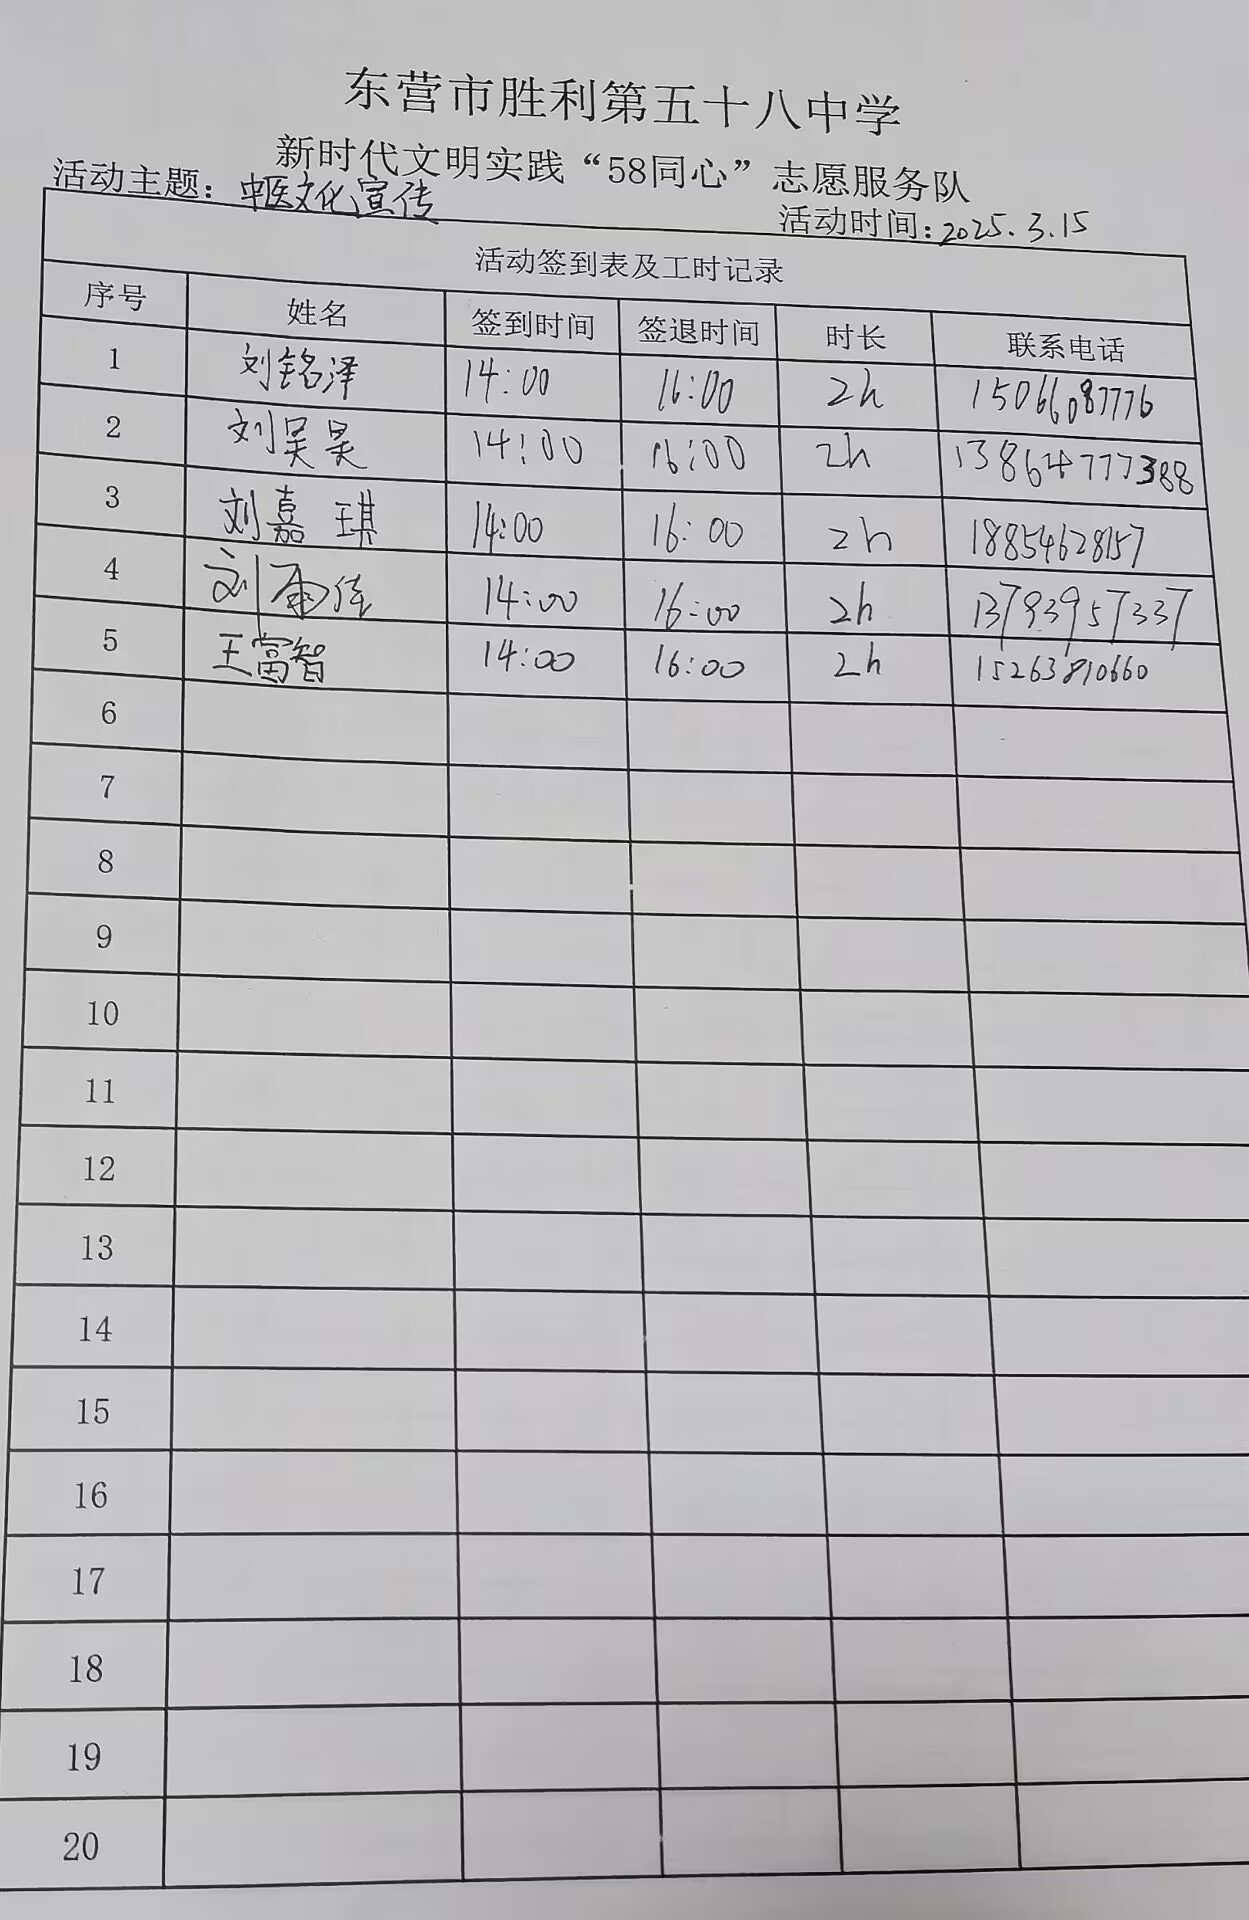 东营市胜利第五十八中学
新时代文明实践“58同心”志愿服务队
活动主题：中医文化宣传 活动时间：2025.3.15
活动签到表及工时记录
序号 姓名 签到时间 签退时间 时长 联系电话
1 刘铭泽 14:00 16:00 2h 15066087776
2 刘昊昊 14:00 16:00 2h 13864777388
3 刘嘉琪 14:00 16:00 2h 18854628157
4 刘雨佳 14:00 16:00 2h 13793957337
5 王富智 14:00 16:00 2h 15263810660
6
7
8
9
10
11
12
13
14
15
16
17
18
19
20